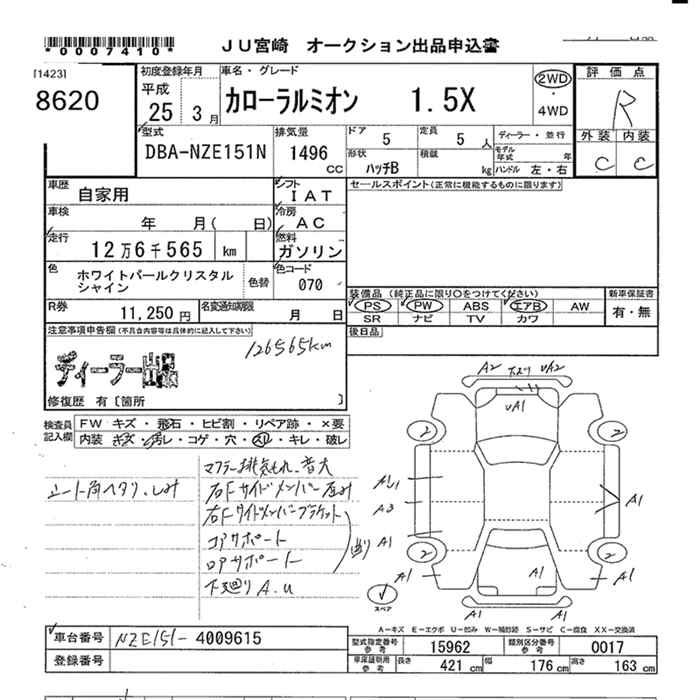 *0007410*
JU宮崎 オークション出品申込書
[1423]
8620
初度登録年月
平成
25 3月
車名・グレード
カローラルミオン 1.5X
2WD
・
4WD
評価点
R
外装 内装
C C
型式
DBA-NZE151N
排気量
1496 cc
ドア 5
定員 5人
形状 ハッチB
積載 kg
ディーラー・並行
モデル年式 年
ハンドル 左・右
車歴 自家用
シフト IAT
セールスポイント(正常に機能するものに限ります)
車検 年 月( 日)
冷房 AC
走行 12万6千565 km
燃料 ガソリン
色 ホワイトパールクリスタル
シャイン
色替
色コード 070
装備品(純正品に限り○をつけてください)
PS PW ABS エアB AW
SR ナビ TV カワ
新車保証書
有・無
R券 11,250円
名変通知期限 月 日
後日品
注意事項申告欄(不具合内容等は具体的に記入して下さい)
126565km
ディーラー出品
修復歴 有〔箇所 〕
検査員
記入欄
FW キズ・飛石・ヒビ割・リペア跡・×要
内装 キズ・汚レ・コゲ・穴・スリ・キレ・破レ
マフラー排気もれ、音大
シート角ヘタリ、しみ
右Fサイドメンバー歪み
右Fサイドメンバーブラケット
コアサポート
ロアサポート
下廻りA.U
A2 UA2
UA1
2 2
A1
A3
A1
A1
2 2
A1 A1 A1
スペア
A1 A1
A-キズ E-エクボ U-凹み W-補修跡 S-サビ C-腐食 XX-交換済
車台番号 NZE151-4009615
登録番号
型式指定番号
参考
15962
類別区分番号
参考
0017
車庫証明用
参考
長さ 421 cm
幅 176 cm
高さ 163 cm